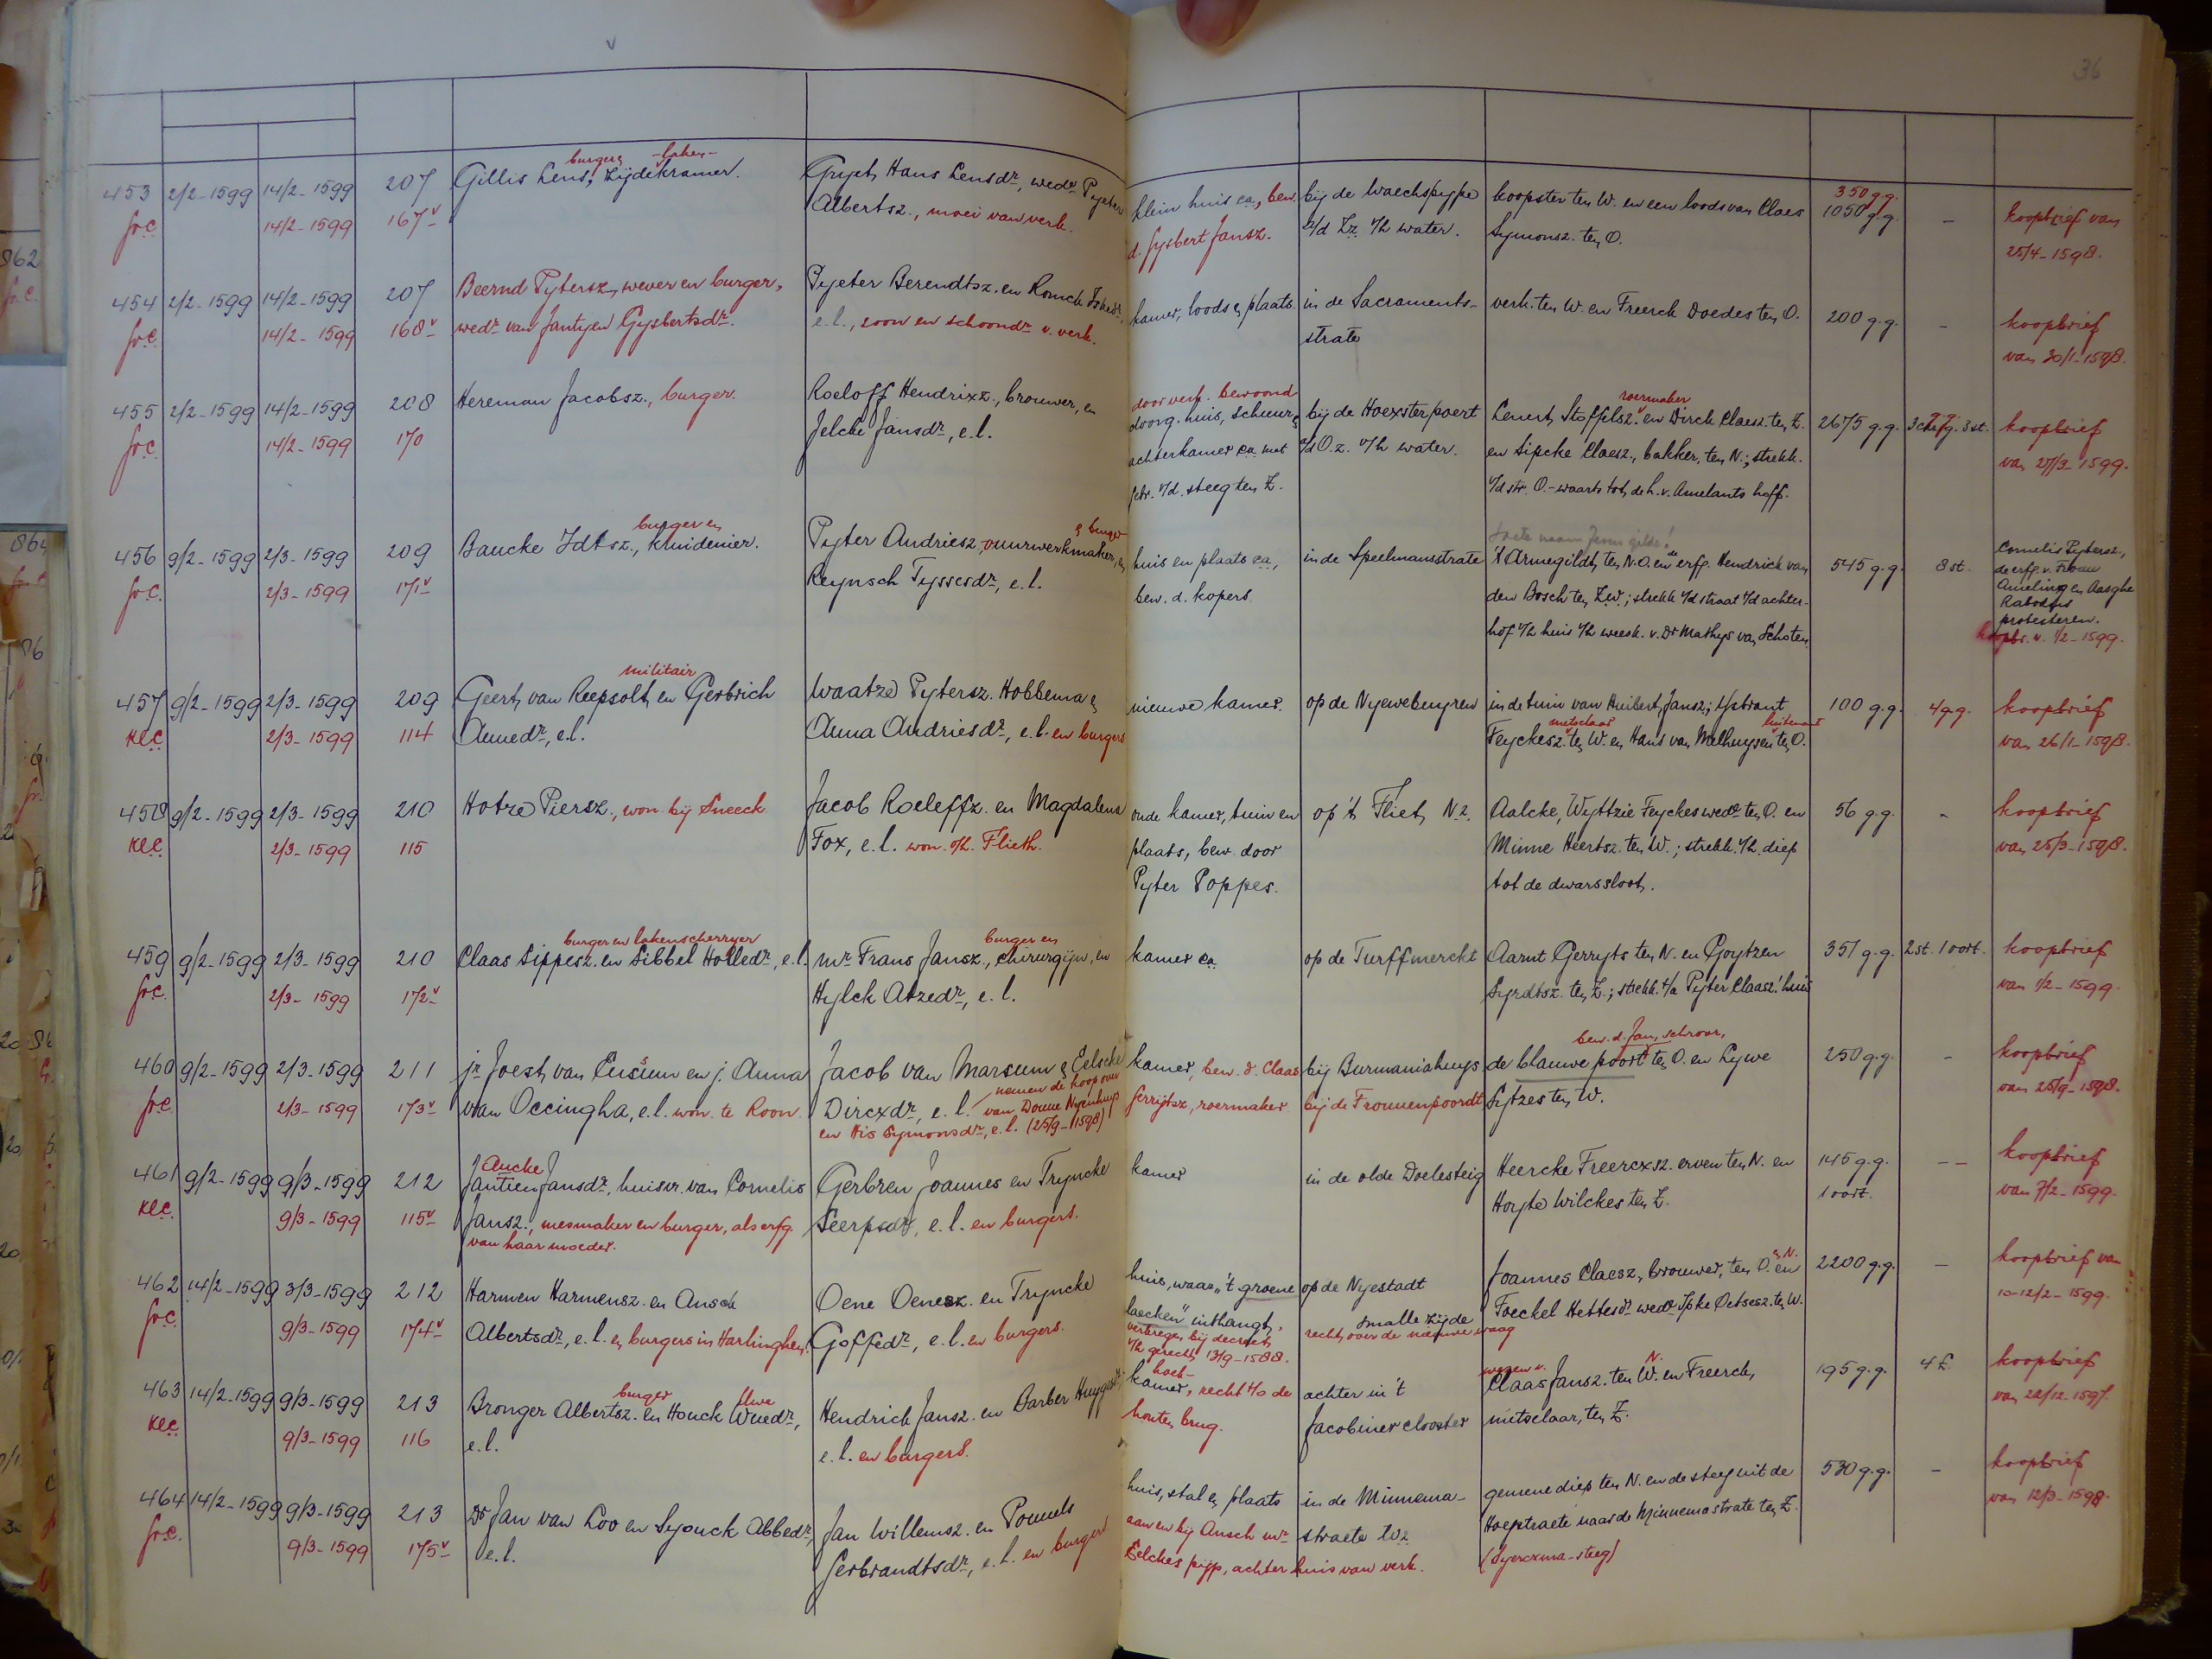 36
453 2/2-1599 14/2-1599 207 Gillis Lens, burger, zijde-laken-kramer. Gryet Hans Lensdr, wedr Pyeter klein huis ca., bew. bij de Waechspype koopster ten W. en een loods van Claes 350 g.g. 1050 g.g. - koopbrief van
pr.c. 14/2-1599 167v Albertsz., moei van verk. d. Gysbert Jansz. a/d Zz. v/h water. Symonsz. ten O. 25/4-1598.
454 2/2-1599 14/2-1599 207 Beernd Pytersz, wever en burger, Pyeter Berendtsz. en Romck kamer, loods & plaats in de Sacraments- verk. ten W. en Freerck Doedes ten O. 200 g.g. - koopbrief
pr.c. 14/2-1599 168v wedr van Jantyen Gysbertsdr. e.l., zoon en schoondr v. verk. strate van 30/1-1598.
455 2/2-1599 14/2-1599 208 Hereman Jacobsz., burger. Roeloff Hendrixz., brouwer, en door verk. bewoond doorg. huis, schuur & bij de Hoexsterpoert Lenert Stoffelsz. roermaker en Dirck Claesz. ten Z. 2675 g.g. 3 st. koopbrief
pr.c. 14/2-1599 170 Jelcke Jansdr, e.l. achterkamer ca. met a/d O.z. v/h water. en Sipcke Claesz., bakker, ten N.; strekk. van 27/3-1599.
gebr. v/d. steeg ten Z. v/d str. O.-waarts tot de h. v. Amelants hoff.
456 9/2-1599 2/3-1599 209 Baucke Idtsz., burger en kruidenier. Pyter Andriesz, uurwerkmaker & burger, en huis en plaats ca., in de Speelmansstrate 't Armegildt ten N.O. en de erfg. Hendrick van 545 g.g. 8 st. Cornelis Pytersz.,
de erfg. v. Frou
Ameling en Aasghe
pr.c. 2/3-1599 171v Reynsch Tyssesdr, e.l. bew. d. kopers den Bosch ten Z.W.; strekk. v/d straat t/d achter- Rabodus
protesteren.
hof v/h huis v/h weesk. v. Dr Mathys van Schoten koopbr. v. 1/2-1599.
457 9/2-1599 2/3-1599 209 Geert van Reepsolt militair en Gerbrich Waatze Pytersz. Hobbema & nieuwe kamer. op de Nyewebuyren in de tuin van Huibert Jansz.; Ysbrant 100 g.g. 4 g.g. koopbrief
kl.c. 2/3-1599 114 Annedr, e.l. Anna Andriesdr, e.l. en burgers Feyckesz. metselaar ten W. en Hans van Melhuysen ten O. van 26/1-1598.
458 9/2-1599 2/3-1599 210 Hotze Piersz., won. bij Sneeck Jacob Roeleffz. en Magdalena oude kamer, tuin en op 't Fliet, N.z. Aalcke, Wyttzie Feyckes wedr ten O. en 56 g.g. - koopbrief
kl.c. 2/3-1599 115 Fox, e.l. won. o/h. Flieth. plaats, bew. door Minne Heertsz. ten W.; strekk. v/h. diep van 25/3-1598.
Pyter Poppes. tot de dwarssloot.
459 9/2-1599 2/3-1599 210 Claas Sippesz. burger en lakenscherryer en Sibbel Holledr, e.l. mr Frans Jansz., burger en chirurgijn, en kamer ca. op de Turffmerckt Aarnt Gerryts ten N. en Goytzen 351 g.g. 2 st. 1 oort. koopbrief
pr.c. 2/3-1599 172v Hylck Atzedr, e.l. Syrdtsz. ten Z.; strekk. t/a Pyter Claasz.' huis van 1/2-1599
460 9/2-1599 2/3-1599 211 jr Joest van Eusum en j. Anna Jacob van Marsum & Eelscke kamer, bew. d. Claas bij Burmaniahuys de blauwe poort bew. d. Jan, schroor, ten O. en Lywe 250 g.g. - koopbrief
pr.c. 2/3-1599 173v van Occingha, e.l. won. te Roon. Dircxdr, e.l. nemen de koop over van Douwe Nyenhuys Gerrytsz, roermaker. bij de Frouwenpoordt Sytzes ten W. van 25/9-1598.
en His Symonsdr, e.l. (25/9-1598)
461 9/2-1599 9/3-1599 212 Jantien Aucke Jansdr, huisvr. van Cornelis Gerbren Joannes en Tryncke kamer in de olde Doelesteig Heercke Freercxsz. erven ten N. en 145 g.g. -- koopbrief
kl.c. 9/3-1599 115v Jansz., mesmaker en burger, als erfg. Seerpsdr, e.l. en burgers. Hoyte Wilckes ten Z. 1 oort. van 7/2-1599.
van haar moeder.
462 14/2-1599 3/3-1599 212 Harmen Harmensz. en Ansck Oene Oenesz. en Tryncke huis, waar "'t groene op de Nyestadt Joannes Claesz., brouwer, ten O. & N. en 2200 g.g. - koopbrief van
pr.c. 9/3-1599 174v Albertsdr, e.l. & burgers in Harlinghen. Goffedr, e.l. en burgers. laecken" uithangt, smalle zijde Foeckel Hettesdr wedr Ipke Oetsesz. ten W. 10-12/2-1599.
verkregen bij decreet recht over de nieuwe waag
v/h gerecht 13/9-1588.
463 14/2-1599 9/3-1599 213 Bronger Albertsz. burger en Houck Uwe Wuedr, Hendrick Jansz. en Barber hoek-kamer, recht t/o de achter in 't wegen v. Claas Jansz. ten W. N. en Freerck, 195 g.g. 4 £ koopbrief
kl.c. 9/3-1599 116 e.l. e.l. en burgers. houten brug. Jacobiner clooster metselaar, ten Z. van 22/12-1597.
464 14/2-1599 9/3-1599 213 Dr Jan van Loo en Syouck Abbedr, Jan Willemsz. en Pouwels huis, stal & plaats in de Minnema- gemene diep ten N. en de steeg uit de 530 g.g. - koopbrief
pr.c. 9/3-1599 175v e.l. Gerbrandtsdr, e.l. en burgers aan en bij Ansck mr straete Wz Hoeptraete naar de Minnemastrate ten Z. van 12/3-1598.
Eelckes pijp, achter huis van verk. (Syercxma-steeg)